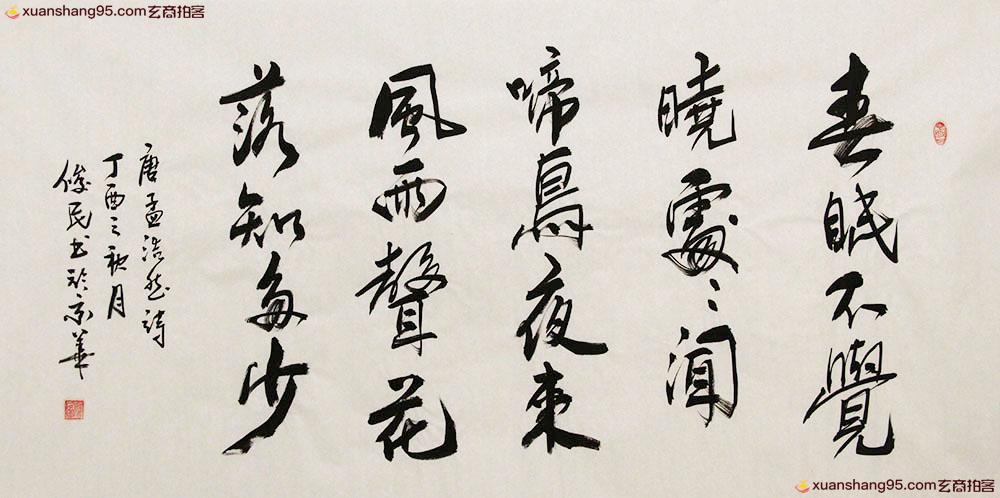 xuanshang95.com玄商拍客
xuanshang95.com玄商拍客
春眠不覺
曉處〻聞
啼鳥夜來
風雨聲花
落知多少
唐孟浩然詩
丁酉之秋月
俊民书於京華
xuanshang95.com玄商拍客